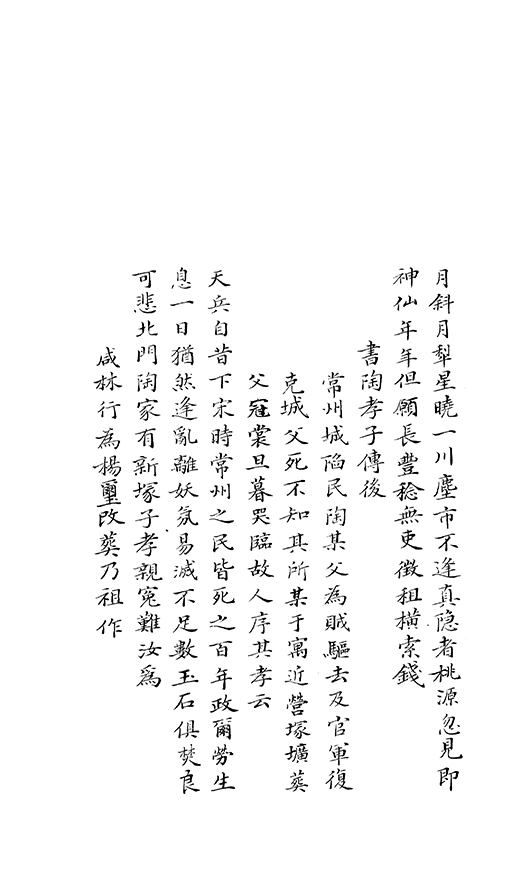 月斜月犁星曉一川塵市不逢真隐者桃源忽見即
神仙年年但願長豐稔無吏徵租橫索錢
書陶孝子傳後
常州城陷民陶某父為賊驅去及官軍復
克城父死不知其所某于寓近營塚壙葬
父冠裳旦暮哭臨故人序其孝云
天兵自昔下宋時常州之民皆死之百年政爾勞生
息一日猶然逢亂離妖氛易滅不足數玉石俱焚良
可悲北門陶家有新塚子孝親冤難汝為
咸林行為楊璽改葬乃祖作